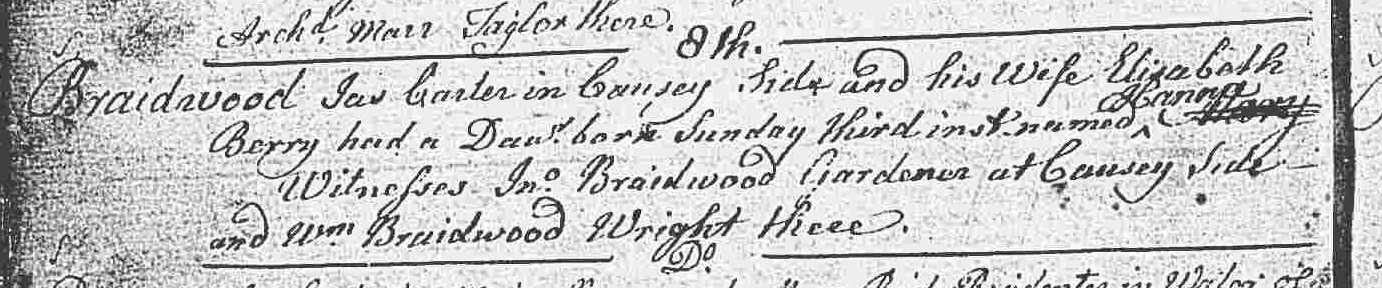 Archd. Marr Taylor there.
8th.
Braidwood Jas Carter in Causey Side and his Wife Elizabeth
Hannah
Berry had a Daur. born Sunday third inst. named ^ Mary
Witnesses Jno. Braidwood Gardener at Causey Side
and Wm Braidwood Wright there.
Do
in